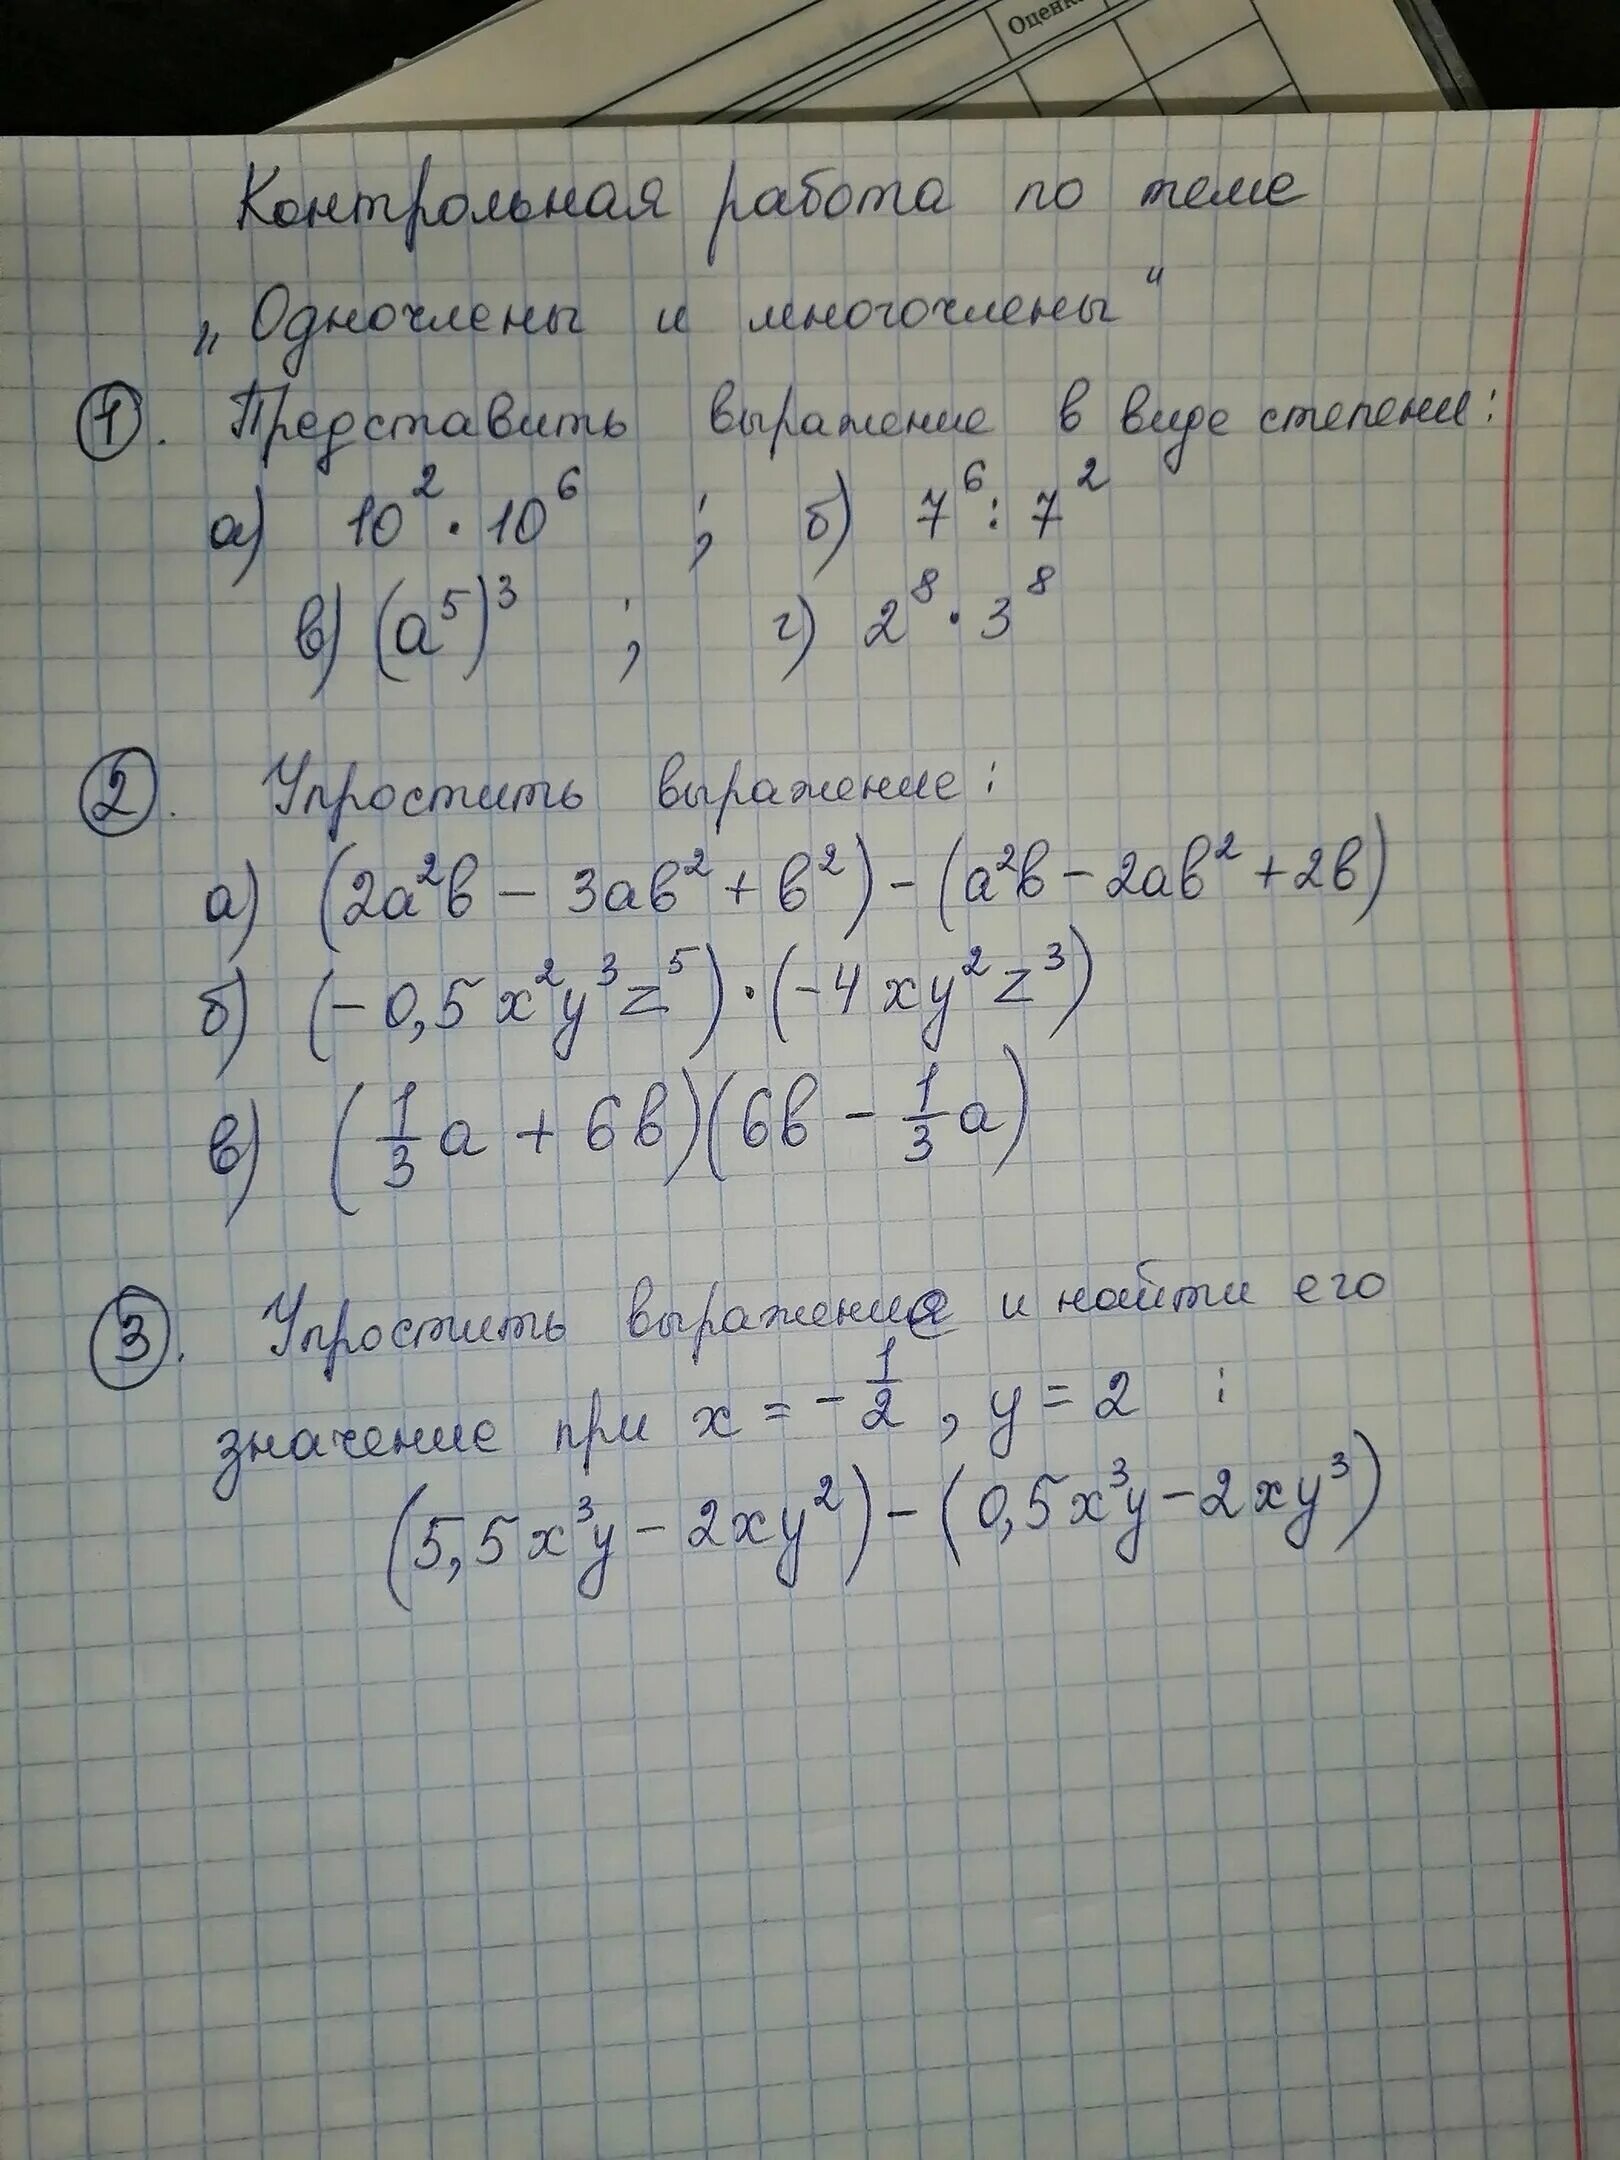 Оценка
Контрольная работа по теме
„Одночлены и многочлены“
1. Представить выражение в виде степени:
а) 10² · 10⁶ ; б) 7⁶ : 7²
в) (a⁵)³ ; г) 2⁸ · 3⁸
2. Упростить выражение:
а) (2a²b − 3ab² + b²) − (a²b − 2ab² + 2b)
б) (−0,5x²y³z⁵) · (−4xy²z³)
в) (1/3 a + 6b)(6b − 1/3 a)
3. Упростить выражение и найти его
значение при x = −1/2, y = 2 :
(5,5x³y − 2xy²) − (0,5x³y − 2xy³)